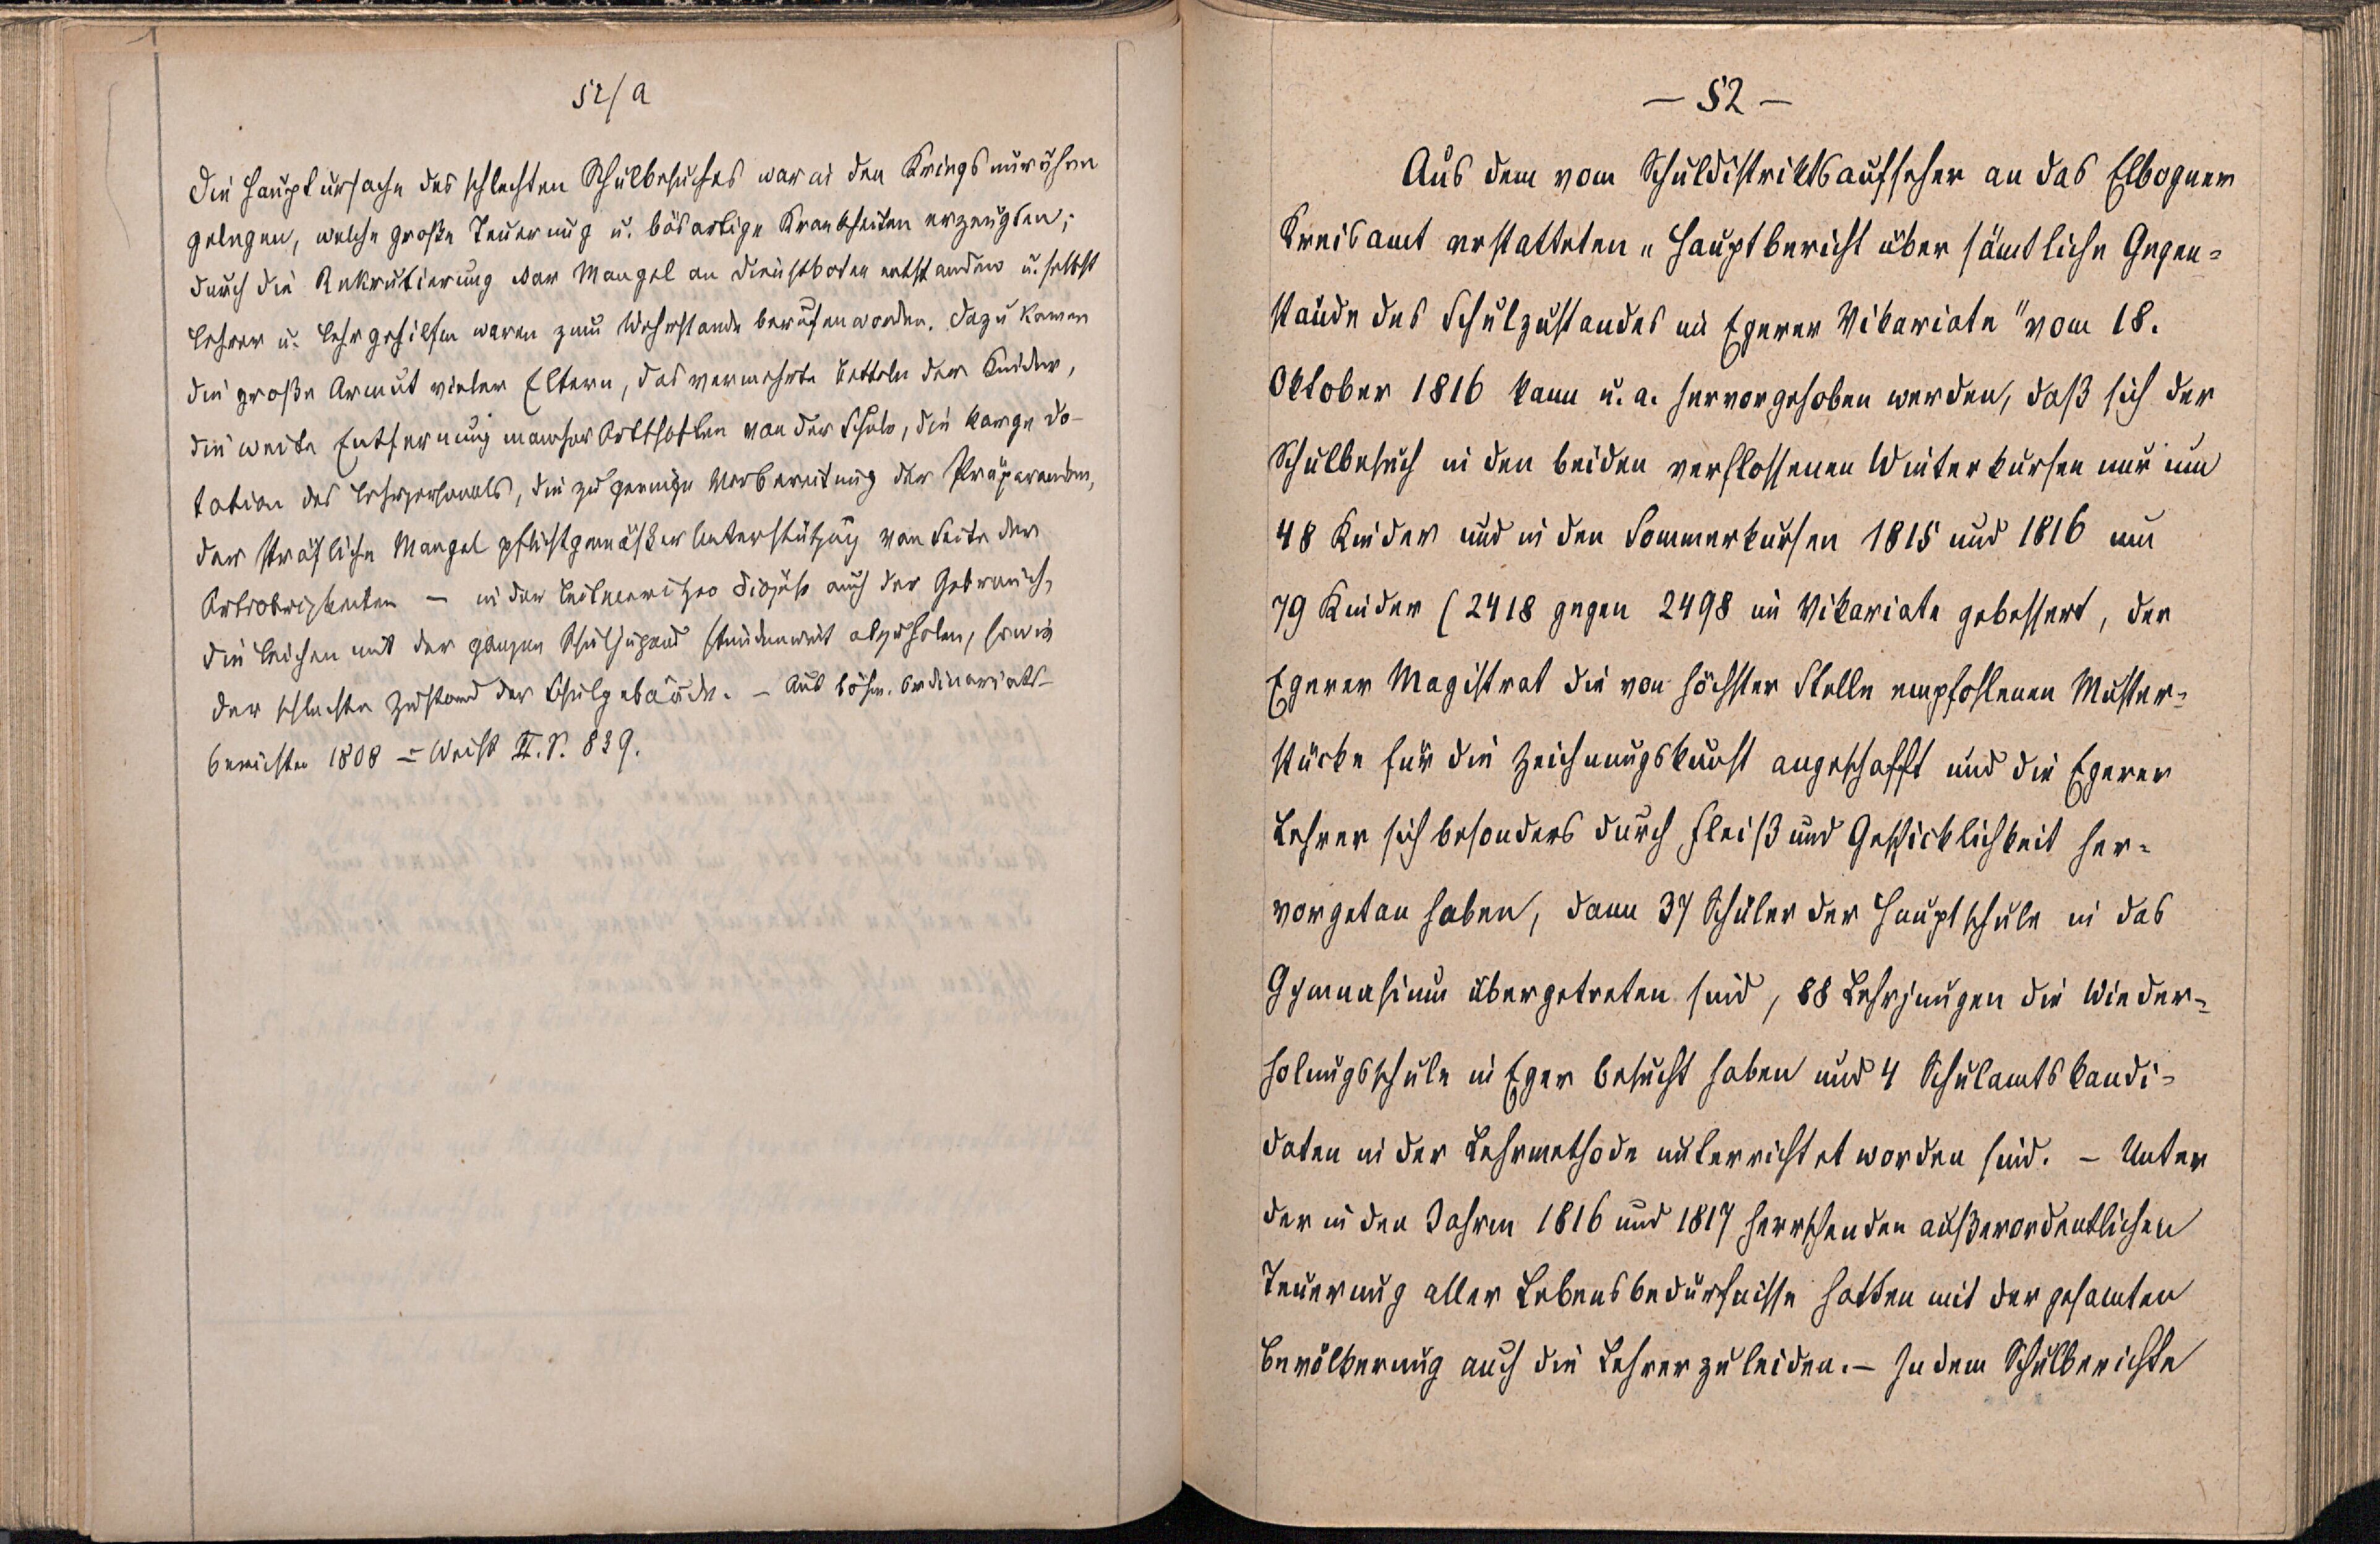 52/a
Die Hauptursache des schlechten Schulbesuches war in den Kriegsunruhen
gelegen, welche große Teuerung u. bösartige Krankheiten erzeugten;
durch die Rekrutierung war Mangel an Dienstboten entstanden u. selbst
Lehrer u. Lehrgehilfen waren zum Wehrstande berufen worden. Dazu kamen
die große Armut vieler Eltern, das vermehrte Betteln der Kinder,
die weite Entfernung mancher Ortschaften von der Schule, die karge Do-
tation des Lehrpersonals, die zu geringe Vorbereitung der Präparanden,
der sträfliche Mangel pflichtgemäßer Unterstützung von Seite der
Ortsobrigkeiten – in der Leitmeritzer Diözese auch der Gebrauch,
die Leichen mit der ganzen Schuljugend stundenweit abzuholen, sowie
der schlechte Zustand der Schulgebäude. – Aus böhm. Ordinariats-
berichten 1808 = Weiß II. S. 839.
— 52 —
Aus dem vom Schuldistriktsaufseher an das Elbogner
Kreisamt erstatteten „Hauptbericht über sämtliche Gegen=
stände des Schulzustandes im Egerer Vikariate" vom 18.
Oktober 1816 kann u. a. hervorgehoben werden, daß sich der
Schulbesuch in den beiden verflossenen Winterkursen nur um
48 Kinder und in den Sommerkursen 1815 und 1816 um
79 Kinder (2418 gegen 2498 im Vikariate gebessert, der
Egerer Magistrat die von höchster Stelle empfohlenen Muster=
stücke für die Zeichnungskunst angeschafft und die Egerer
Lehrer sich besonders durch Fleiß und Geschicklichkeit her=
vorgetan haben, dann 37 Schüler der Hauptschule in das
Gymnasium übergetreten sind, 88 Lehrjungen die Wieder=
holungsschule in Eger besucht haben und 4 Schulamtskandi=
daten in der Lehrmethode unterrichtet worden sind. – Unter
der in den Jahren 1816 und 1817 herrschenden außerordentlichen
Teuerung aller Lebensbedürfnisse hatten mit der gesamten
Bevölkerung auch die Lehrer zu leiden. – In dem Schulberichte